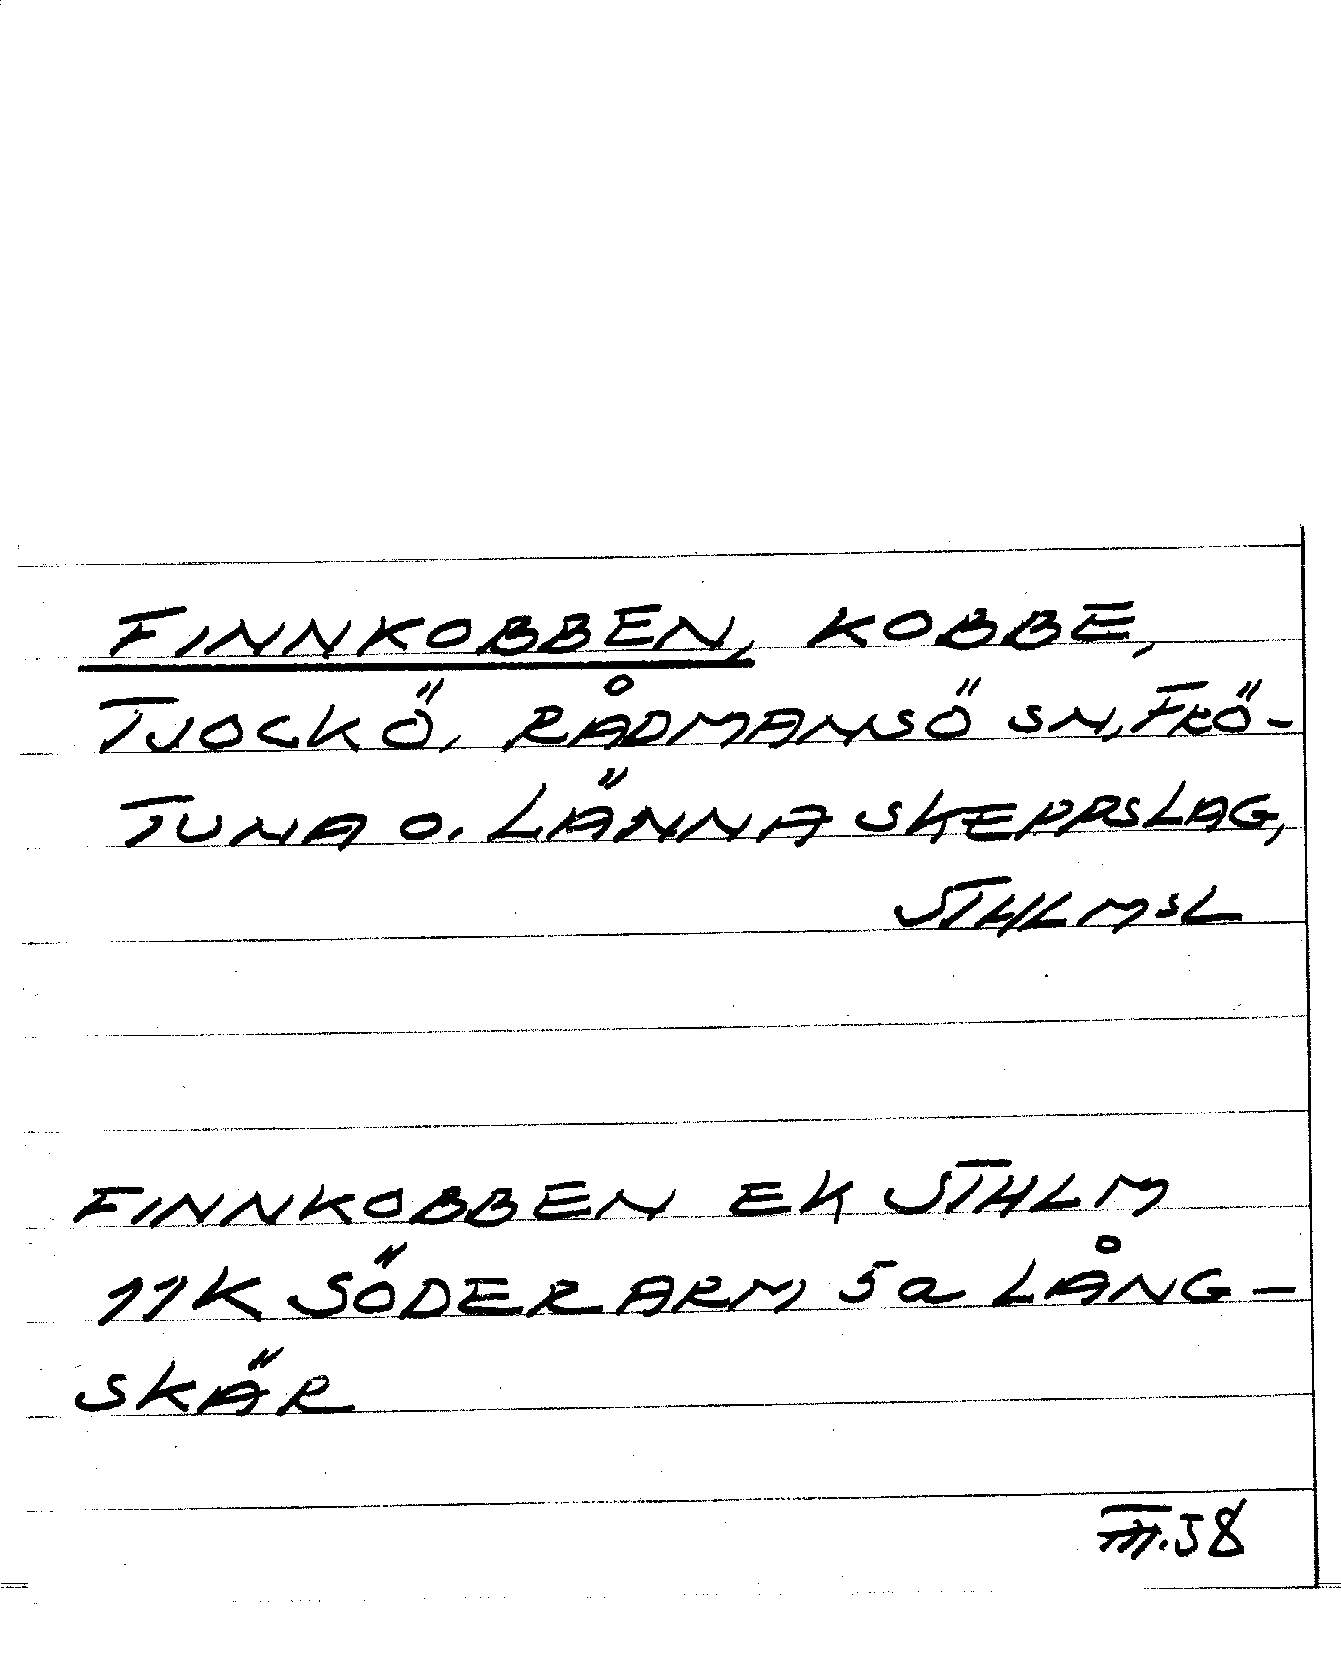 FINNKOBBEN, KOBBE,
TJOCKÖ, RÅDMANSÖ SN, FRÖ-
TUNA O. LÄNNA SKEPPSLAG,
STHLMSL
FINNKOBBEN EK STHLM
11K SÖDERARM 5a LÅNG-
SKÄR
III.58